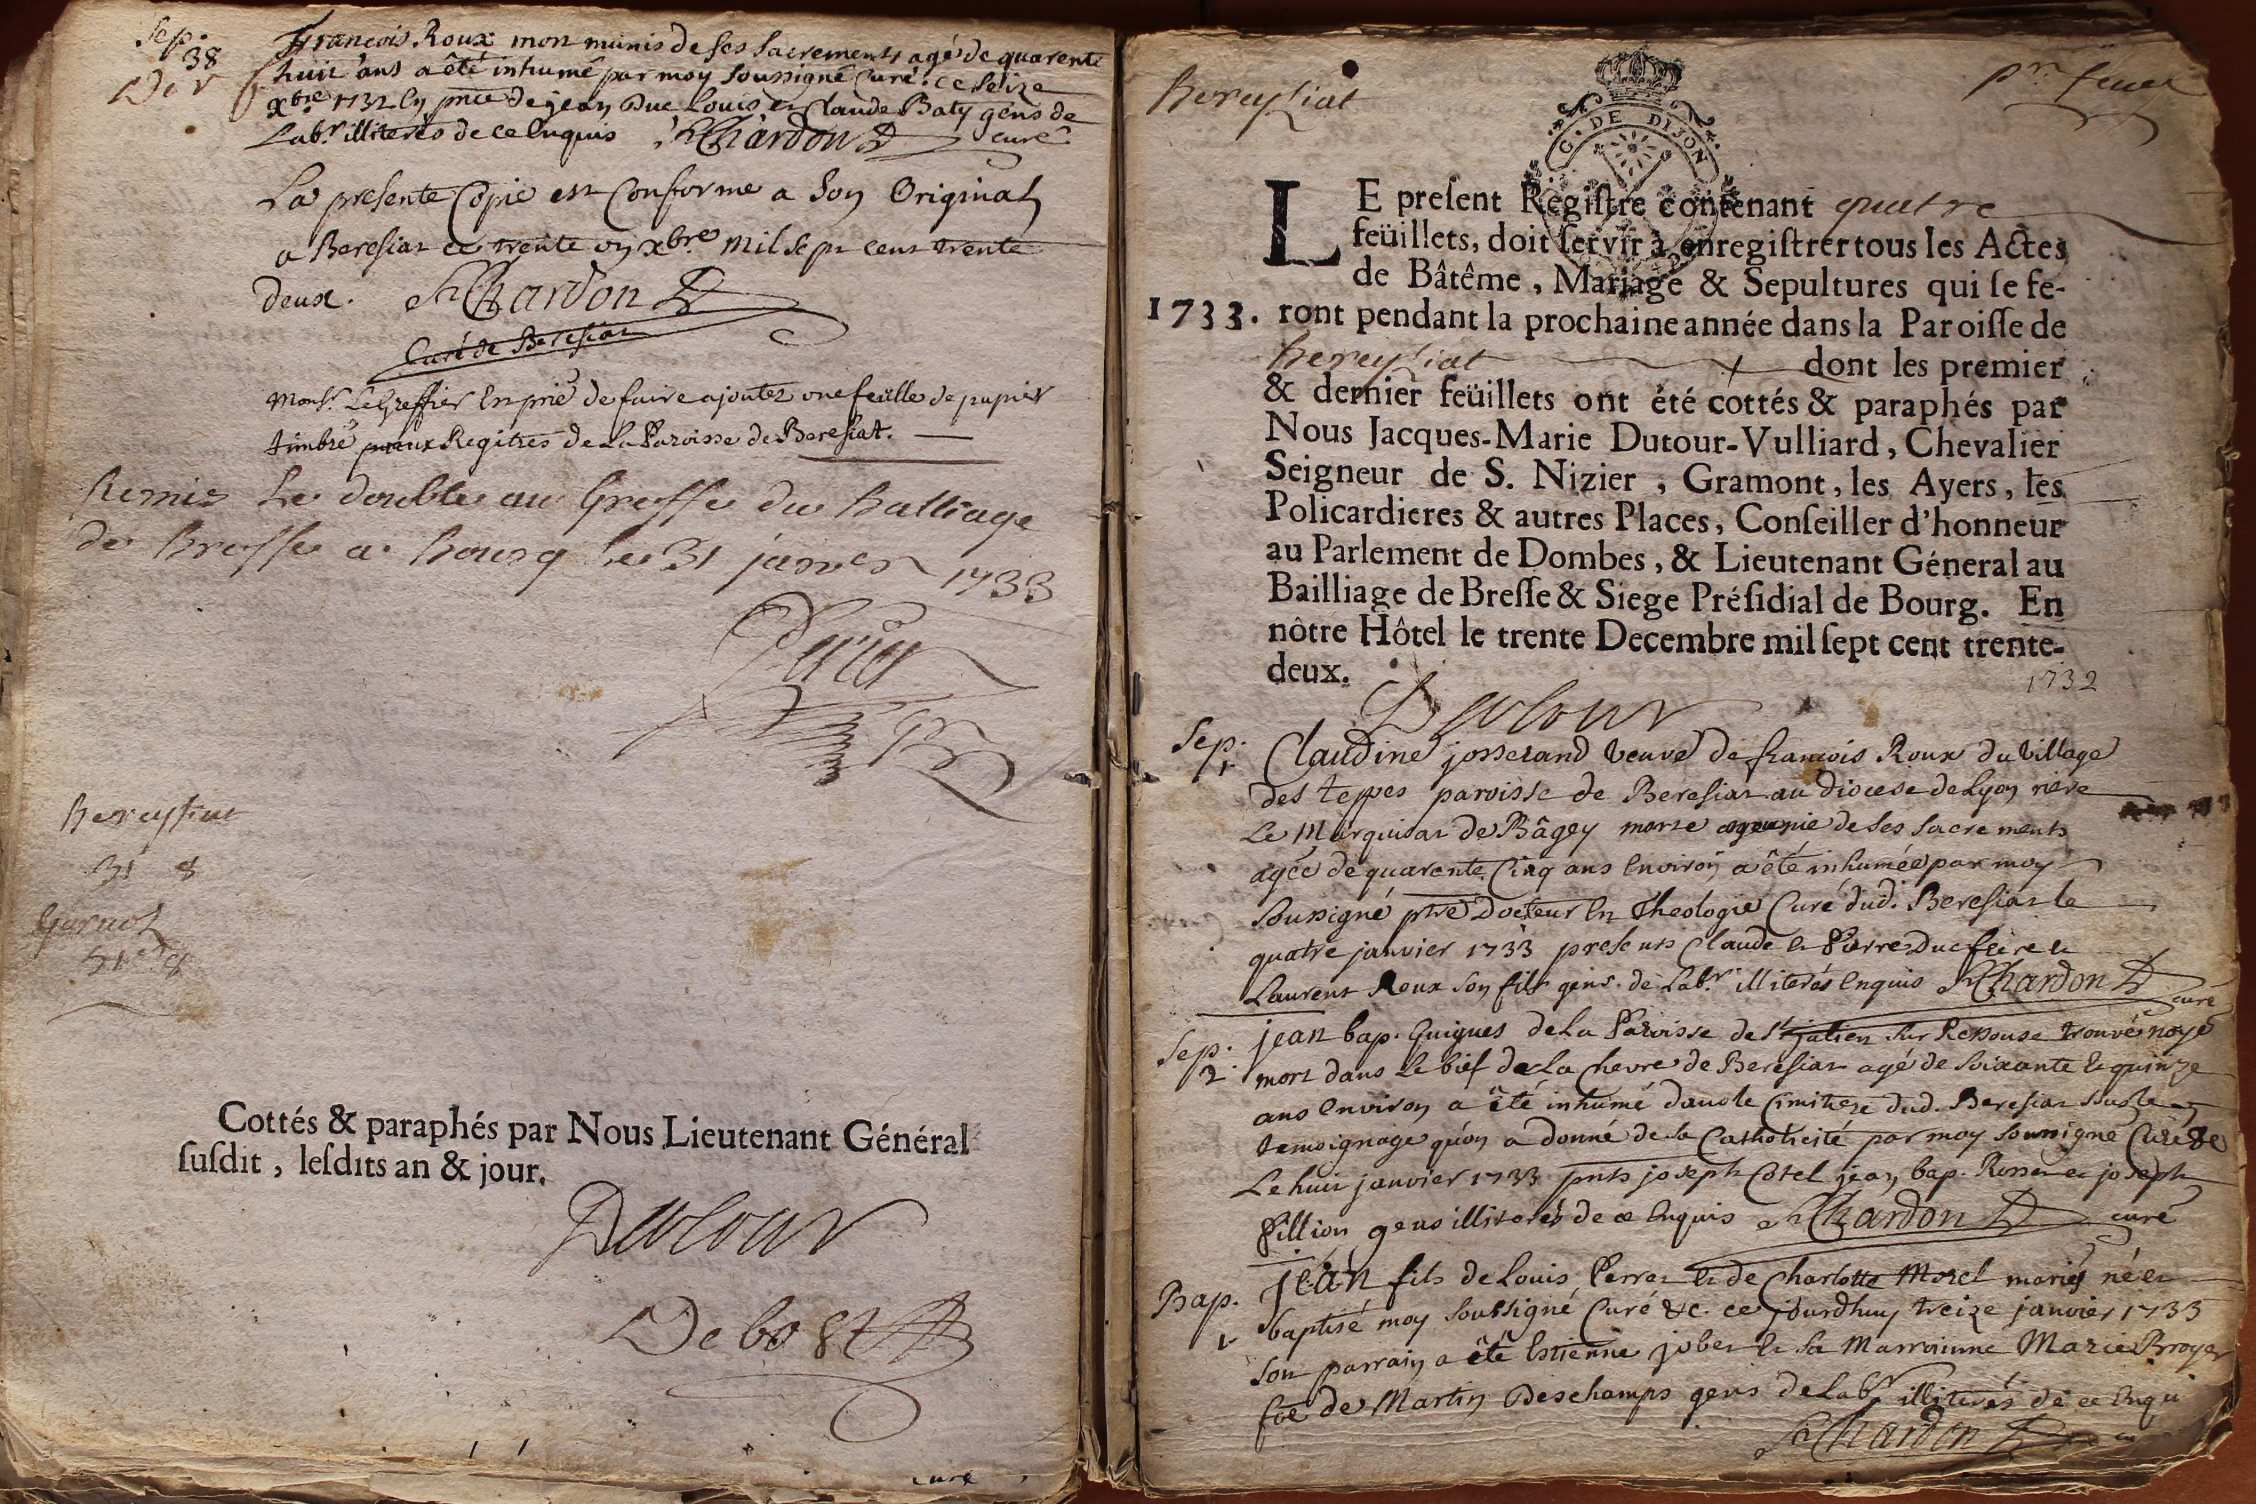 Sep.
38
Der
François Roux mort munis de ses Sacrements agé de quarente
huit ans a êté inhumé par moy soussigné Curé. ce seize
xbre 1732 en pnce de jean Duc Louis et Claude Baty gens de
Labr. illiterés de ce Enquis Chardon curé
La presente Copie est Conforme a Son Original
a Beresiat ce trente un xbre mil sept cent trente
deux. Chardon
Curé de Beresiat
Monsr. Le Greffier Est prié de faire ajouter une feuille de papier
timbré aux Regitres de La Paroisse de Beresiat.
Remis Le double au Greffe du Balliage
de Bresse a Bourg le 31 janver 1733
Bereysiat
31 8
Cottés & paraphés par Nous Lieutenant Général
susdit, lesdits an & jour.
Dutour
Debost
curé
Bereysiat
pr. feuet
G. DE DIJON
LE present Registre contenant quatre
feüillets, doit servir à enregistrer tous les Actes
de Bâtême, Mariage & Sepultures qui se fe-
1733. ront pendant la prochaine année dans la Paroisse de
Bereysiat dont les premier
& dernier feüillets ont été cottés & paraphés par
Nous Jacques-Marie Dutour-Vulliard, Chevalier
Seigneur de S. Nizier, Gramont, les Ayers, les
Policardieres & autres Places, Conseiller d'honneur
au Parlement de Dombes, & Lieutenant Géneral au
Bailliage de Bresse & Siege Présidial de Bourg. En
nôtre Hôtel le trente Decembre mil sept cent trente-
deux.
1732
Dutour
Sep.
1
Claudine josserand veuve de francois Roux du village
des teppes paroisse de Beresiat au diocese de Lyon riere
Le Marquisat de Bâgey morte munie de ses sacrements
agée de quarente Cinq ans Environ a êté inhumée par moy
soussigné ptre Docteur En Theologie Curé dud. Beresiat le
quatre janvier 1733 presents Claude et Pierre Duc frere et
Laurent Roux son fils gens de Labr. illiterés Enquis Chardon
curé
Sep.
2
jean bap. Guigues de La Paroisse de St julien sur Ressouse trouvé noyé
mort dans Le bief de La Chevre de Beresiat agé de soixante et quinze
ans Environ a êté inhumé dans le Cimitiere dud. Beresiat sus le
temoignage qu'on a donné de sa Catholicité par moy soussigné Curé &c
Le huit janvier 1733 pnts joseph Cotel jean bap. Rosset et joseph
Pillion gens illiterés de ce Enquis Chardon curé
Bap.
1
jean fils de Louis Perret et de Charlotte Morel mariés né et
baptisé moy soussigné Curé &c. ce jourdhuy treize janvier 1733
son parrain a êté Estienne jober et sa Marrainne Marie Broyer
fee de Martin Deschamps gens de Labr. illiterés de ce Enqui
Chardon